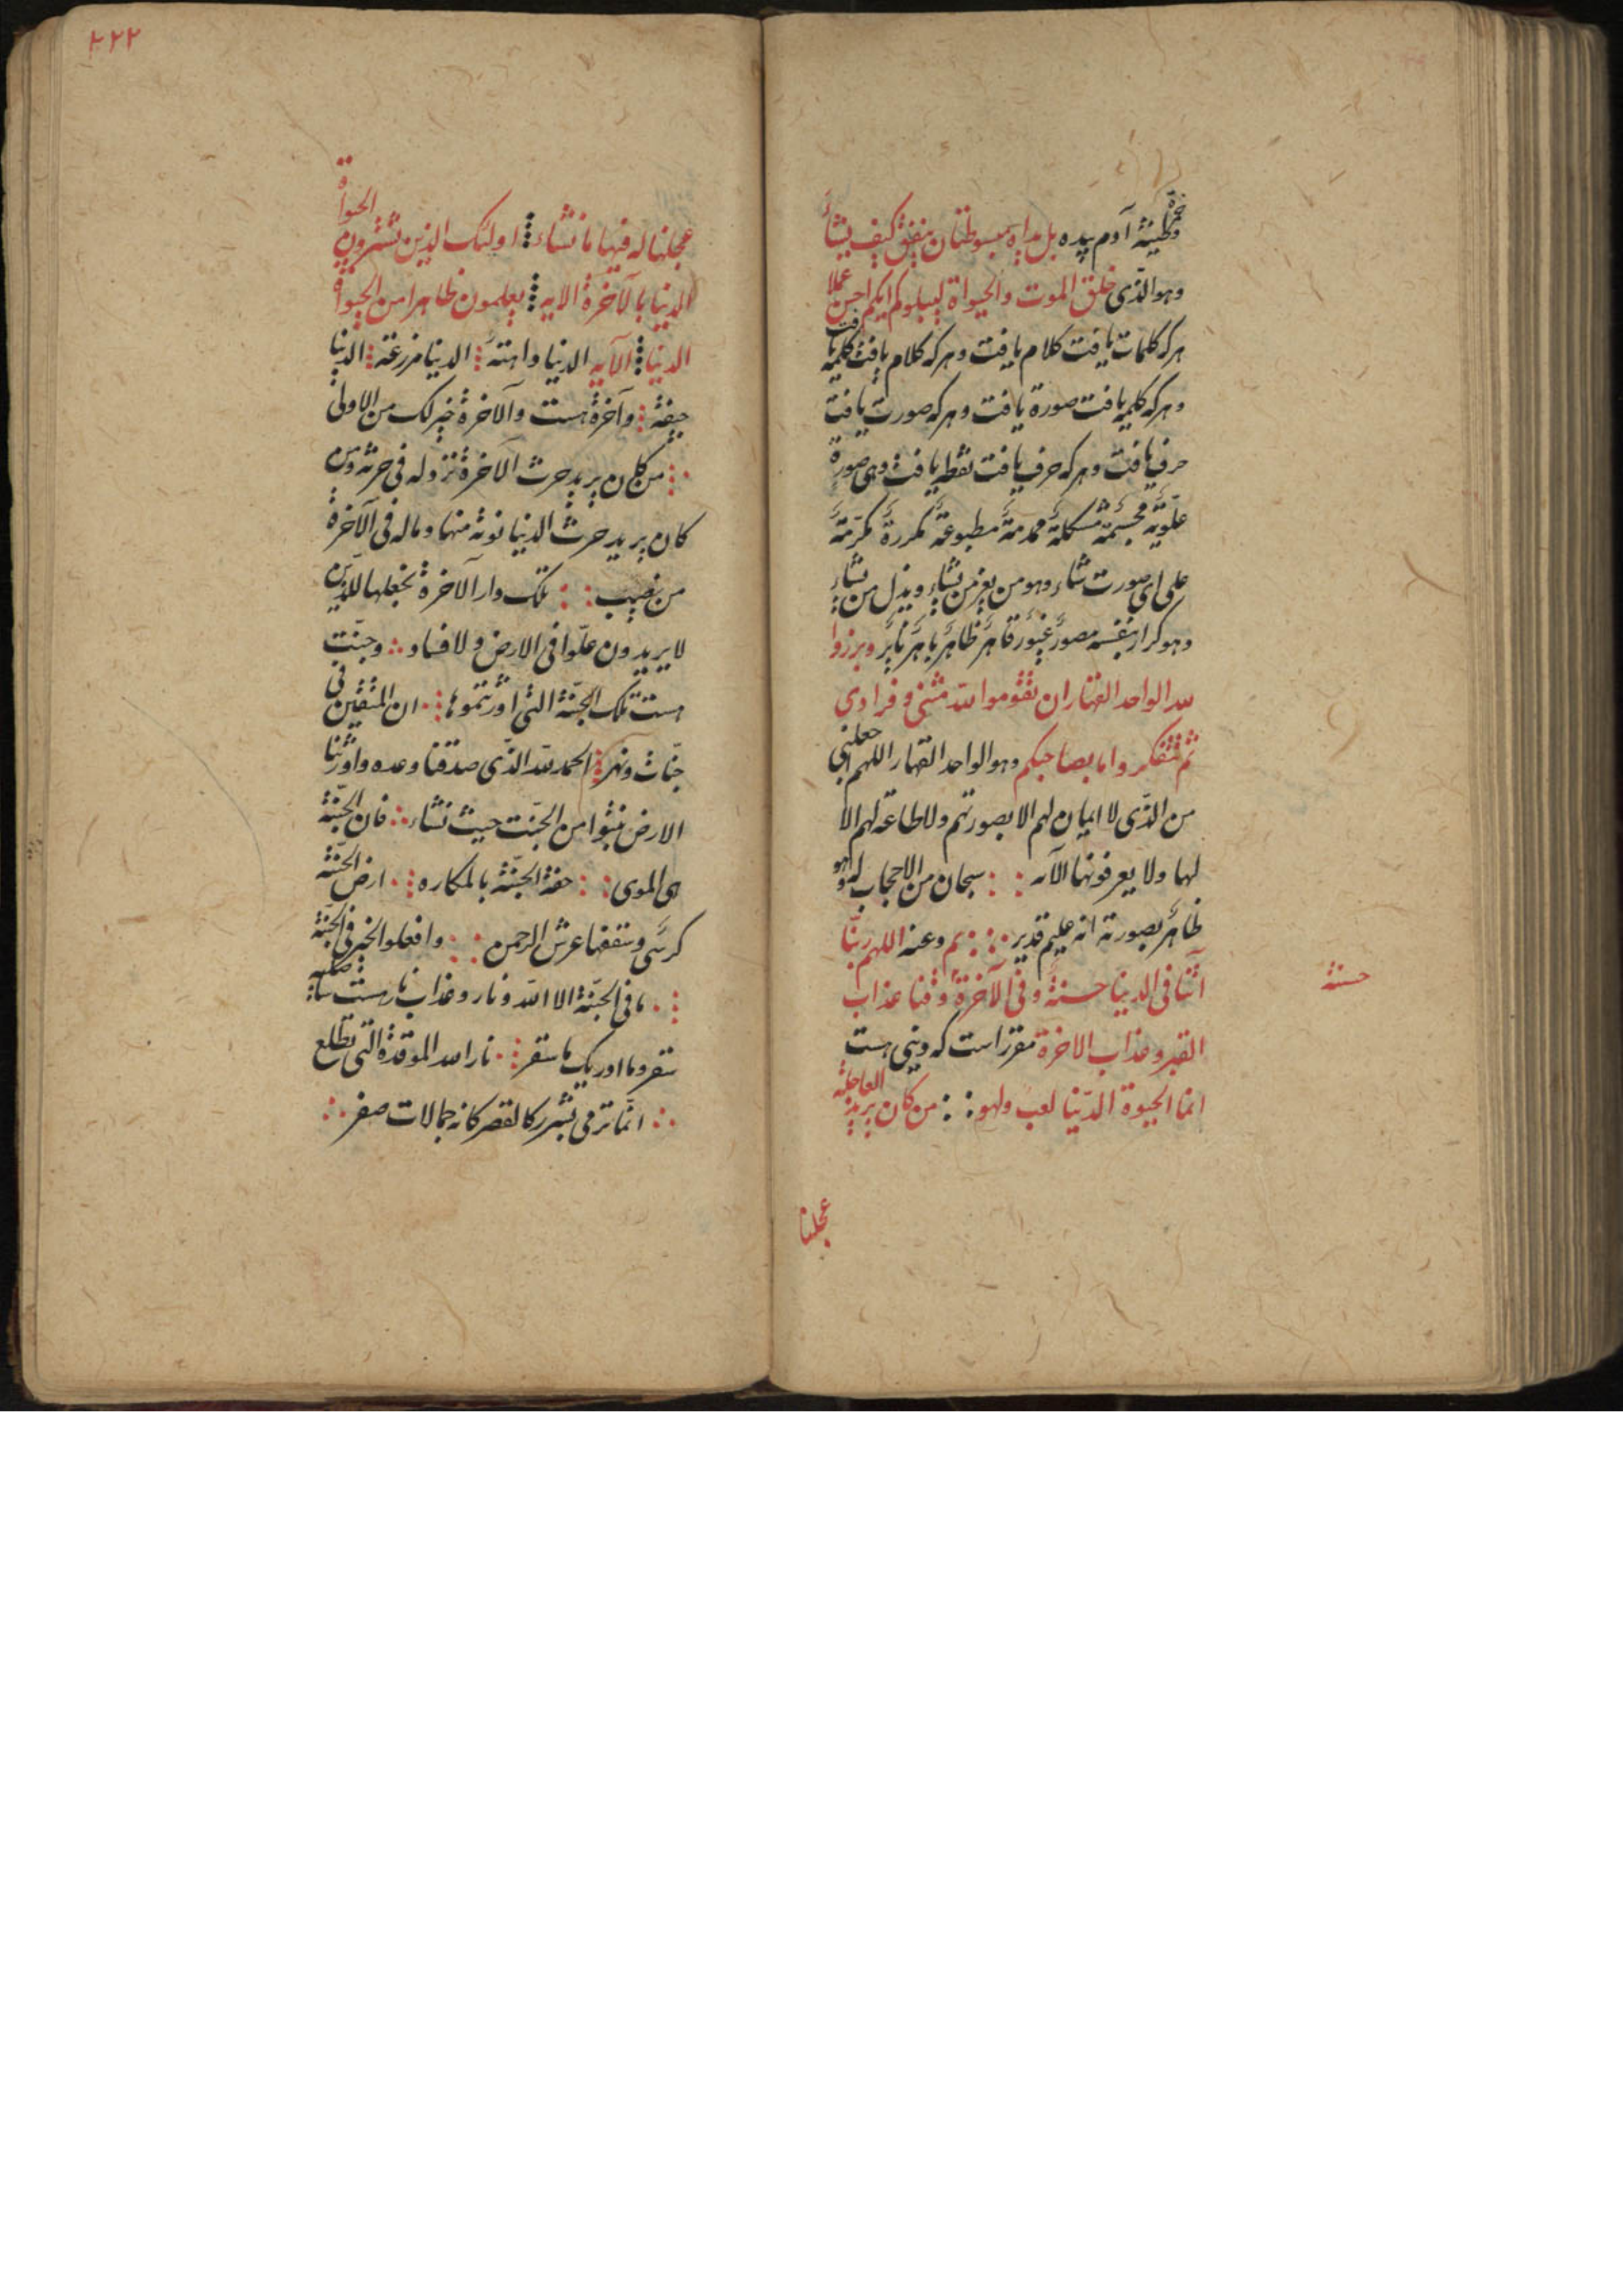 خمرة طینة آدم بیده بل یداه مبسوطتان ینفق کیف یشآ
وهو الذّی خلق الموت والحیواة لیبلوکم ایکم احسن عملا
هرکه کلمات یافت کلام یافت وهرکه کلام یافت کلمه یافت
وهرکه کلمه یافت صورة یافت وهرکه صورت یافت
حرف یافت وهرکه حرف یافت نقطه یافت وهی صورة
علّویّه مجسّمة مشکلة مطبوعة مکررة مکرّمة
علی ای صورت شاء وهو من یعز من یشاء ویذل من یشاء
وهو کرار بنفسه مصوّر غیّور قاهر ظاهر باهر وبرزوا
لله الواحد القهار ان تقوموا لله مثنی و فرادی
ثم تتفکروا ما بصاحبکم وهو الواحد القهار اللهم اجعلنی
من الذّی لا ایمان لهم الا بصورتهم ولا طاعة لهم الا
لها ولا یعرفونها الآله سبحان من لا حجاب له وهو
ظاهر بصورته انه علیم قدیر وعنه اللهم ربنّا
آتنا فی الدینا حسنة وفی الآخرة وقنا عذاب
حسنة
القبر وعذاب الاخرة مقرّر است که دینی هست
انما الحیوة الدّینا لعب ولهو من کان یرید العاجلة
عجلنا
۴۲۲
عجلنا له فیها ما نشاء اولئک الذین تشترون الحیواة
الدینا بالآخرة الایه یعلمون ظاهرا من الحیواة
الدینا الآیه الدنیا واهتة الدینا مزرعة الدینا
جیفة وآخرة هست والآخرة خیر لک من الاولی
من کان یرید حرث الآخرة نزد له فی حرثه ومن
کان یرید حرث الدنیا نوته منها وماله فی الآخرة
من نصیب تلک دار الآخرة نجعلها للذّین
لا یریدون علّوا فی الارض ولا فساد وجنّت
هست تلک الجنّة التی اورثتموها ان المتقین فی
جنّات ونهر الحمد لله الذّی صدقنا وعده واورثنا
الارض نتبوّا من الجنّت حیث نشاء فان الجنّة
هی الموی حفة الجنّة بالمکاره ارض الجنّة
کرسّی وسقفها عرش الرحمن وافعلوا الخیر فی الجنّة
ما فی الجنّة الا الله ونار وعذاب نار هست ساصلیه
سقر وما ادریک ما سقر نار الله الموقدة التی تطلع
انّما ترمی بشرر کالقصر کانه جمالات صفر